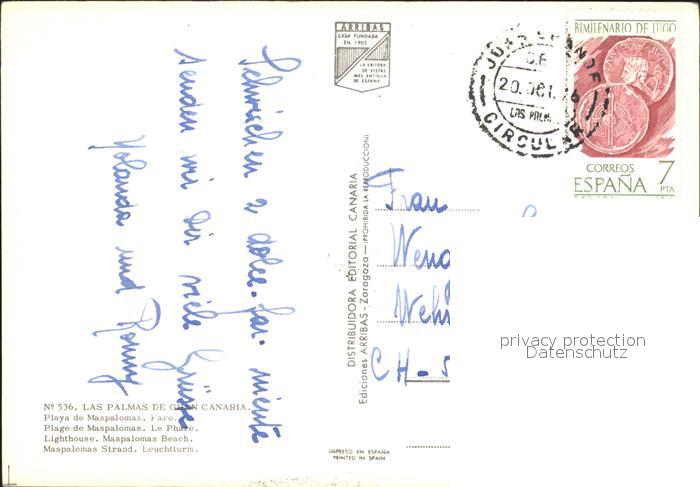 ARRIBAS
CASA FUNDADA
EN 1905
LA EDITORA
DE VISTAS
MAS ANTIGUA
DE ESPAÑA
JUAN GRANDE
20. OCT. 76
LAS PALM
CIRCULAR
BIMILENARIO DE LUGO
CORREOS
ESPAÑA 7
PTA
Zwischen 2 dolce-far-niente
senden wir dir viele Grüsse
Yolanda und Ronny
DISTRIBUIDORA EDITORIAL CANARIA
Ediciones ARRIBAS - Zaragoza - (PROHIBIDA LA REPRODUCCION)
Frau
CH-
privacy protection
Datenschutz
Nº 536. LAS PALMAS DE GRAN CANARIA.
Playa de Maspalomas. Faro.
Plage de Maspalomas. Le Phare.
Lighthouse. Maspalomas Beach.
Maspalomas Strand. Leuchtturm.
IMPRESO EN ESPAÑA
PRINTED IN SPAIN